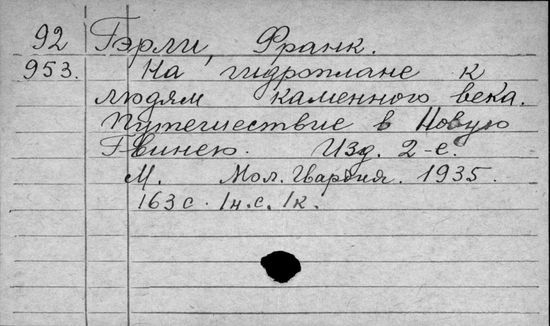 92 Гэрли, Франк.
953. На гидроплане к
людям каменного века.
Путешествие в Новую
Гвинею. Изд. 2-е.
М. Мол. Гвардия. 1935.
163 с. 1н.с. 1к.